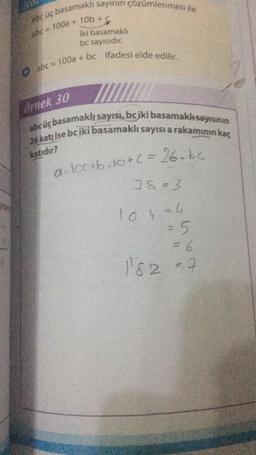 abc üç basamaklı sayının çözümlenmesi ile
abc = 100a + 10b + c
iki basamaklı
bc sayısıdır.
abc = 100a + bc ifadesi elde edilir.
Örnek 30
abc üç basamaklı sayısı, bc iki basamaklı sayısının
26 katı ise bc iki basamaklı sayısı a rakamının kaç
katıdır?
a.100+b.10+c = 26.bc
78 = 3
104 = 4
= 5
= 6
182 = 7